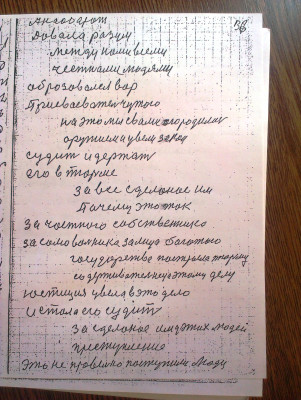 58
давала разум
между нами всеми
честными людями
образовался вор
присвоевател чужого
на это мы свами огородили
оружием и увели закон
судит и держат
его в тюрме
за все сделаное им
Почему это так
За частною собственника
за самоволника за лица богатого
государство построило тюрму
содержателную этому делу
юстиция увела в это дело
и стала его судит
за сделаное им этих людей
преступление
Это не правелно поступили люди